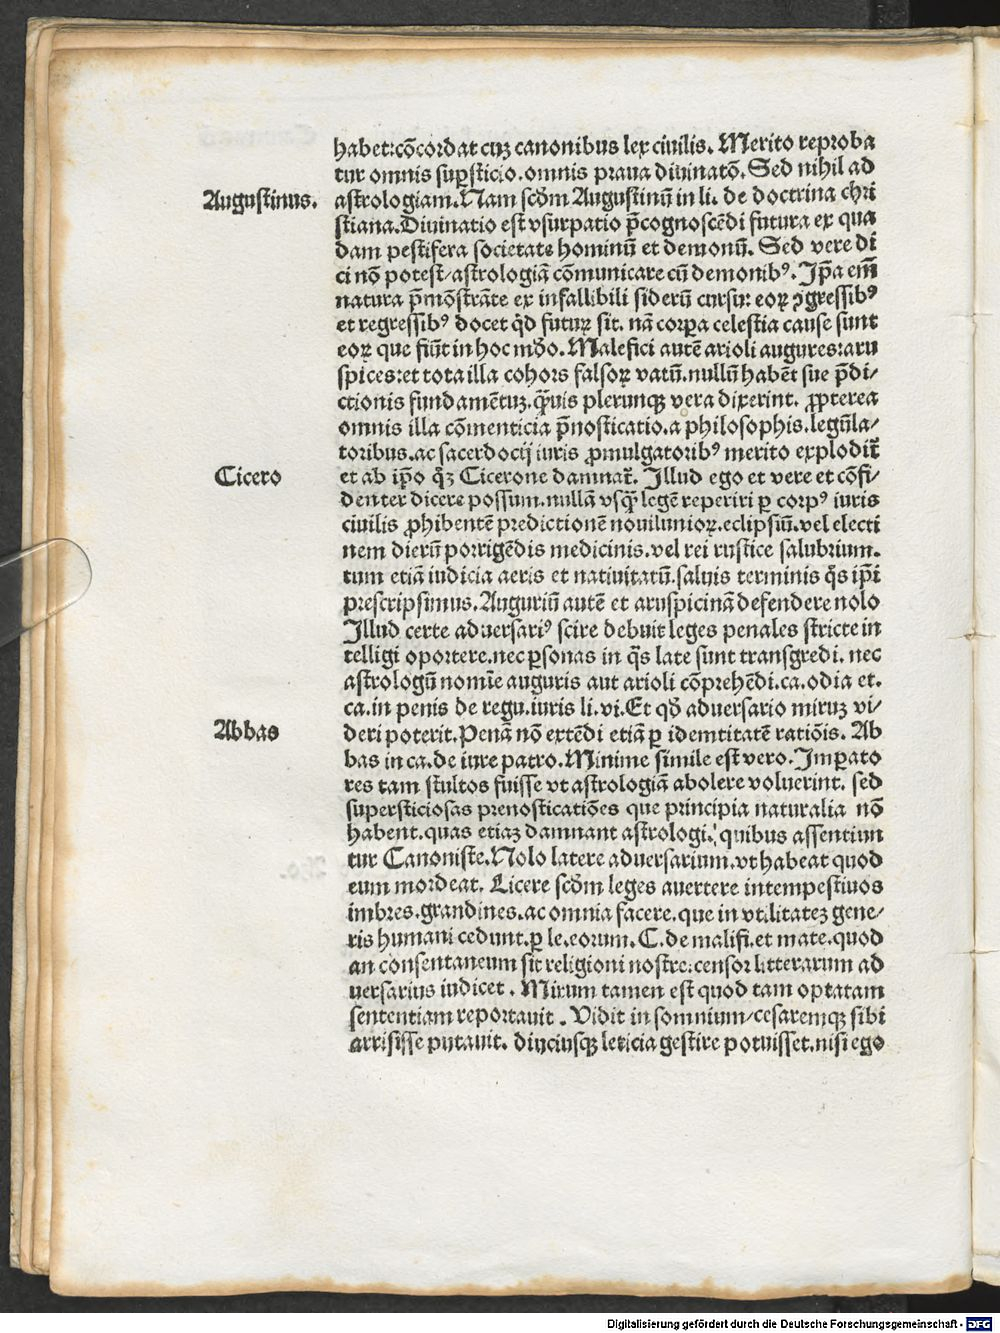 habet:cōcordat cuꝫ canonibus lex ciuilis. Merito reproba
tur omnis suꝑsticio.omnis praua diuinatō. Sed nihil ad
Augustinus.
astrologiam.Nam scd̄m Augustinū in li. de doctrina chri
stiana.Diuinatio est vsurpatio p̄cognoscēdi futura ex qua
dam pestifera societate hominū et demonū. Sed vere di
ci nō potest/astrologiā cōmunicare cū demonibꝰ. Ip̄a em̄
natura p̄mōstrāte ex infallibili siderū cursu: eoꝝ ꝓgressibꝰ
et regressibꝰ docet qd̄ futuꝝ sit. nā corꝑa celestia cause sunt
eoꝝ que fiūt in hoc mūdo. Malefici autē arioli augures:aru
spices:et tota illa cohors falsoꝝ vatū.nullū habēt sue p̄di/
ctionis fundamētuꝫ.q̄uis plerunqꝫ vera dixerint. ꝓpterea
omnis illa cōmenticia p̄nosticatio.a philosophis.legūla/
toribus.ac sacerdocij iuris ꝓmulgatoribꝰ merito explodit̄
Cicero
et ab ip̄o q̄ꝫ Cicerone damnat̄. Illud ego et vere et cōfi/
denter dicere possum.nullā vsq̄ legē reperiri ꝑ corpꝰ iuris
ciuilis ꝓhibentē predictionē nouilunioꝝ.eclipsiū.vel electi
nem dierū porrigēdis medicinis.vel rei rustice salubrium.
tum etiā iudicia aeris et natiuitatū.saluis terminis q̄s ip̄i
prescripsimus. Auguriū autē et aruspicinā defendere nolo
Illud certe aduersariꝰ scire debuit leges penales stricte in
telligi oportere.nec ꝑsonas in q̄s late sunt transgredi. nec
astrologū nomīe auguris aut arioli cōprehēdi.ca.odia et.
ca.in penis de regu.iuris li.vi.Et qd̄ aduersario miruꝫ vi/
Abbas
deri poterit.Penā nō extēdi etiā ꝑ idemtitatē ratiōis. Ab
bas in ca.de iure patro.Minime simile est vero. Imꝑato
res tam stultos fuisse vt astrologiā abolere voluerint. sed
supersticiosas prenosticatiōes que principia naturalia nō
habent.quas etiaꝫ damnant astrologi. quibus assentiun
tur Canoniste.Nolo latere aduersarium.vt habeat quod
eum mordeat. Licere scd̄m leges auertere intempestiuos
imbres.grandines.ac omnia facere.que in vtilitateꝫ gene/
ris humani cedunt.ꝑ le.eorum.C.de malifi.et mate.quod
an consentaneum sit religioni nostre:censor litterarum ad
uersarius iudicet . Mirum tamen est quod tam optatam
sententiam reportauit . Vidit in somnium/cesaremqꝫ sibi
arrisisse putauit. diuciusqꝫ leticia gestire potuisset.nisi ego
Digitalisierung gefördert durch die Deutsche Forschungsgemeinschaft - DFG